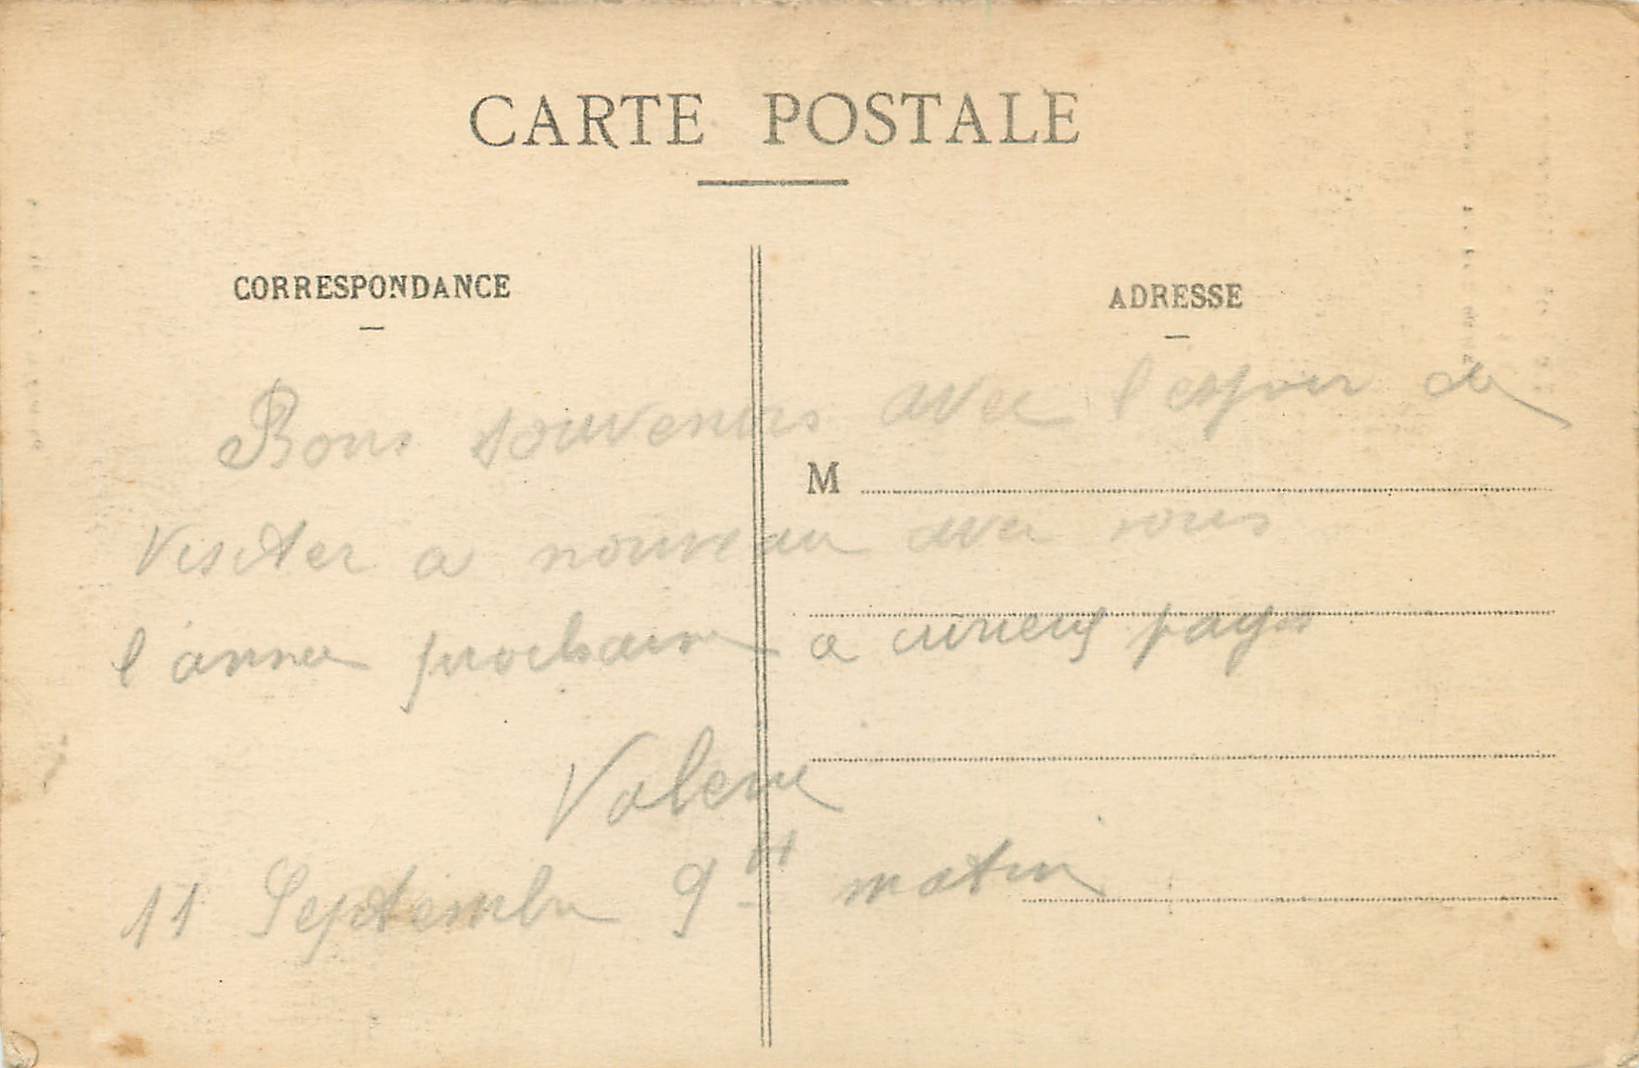 CARTE POSTALE
CORRESPONDANCE
ADRESSE
Bons souvenirs avec l'espoir de
M
visiter a nouveau avec vous
l'année prochaine a curieux pays
Valerie
11 Septembre 9H matin